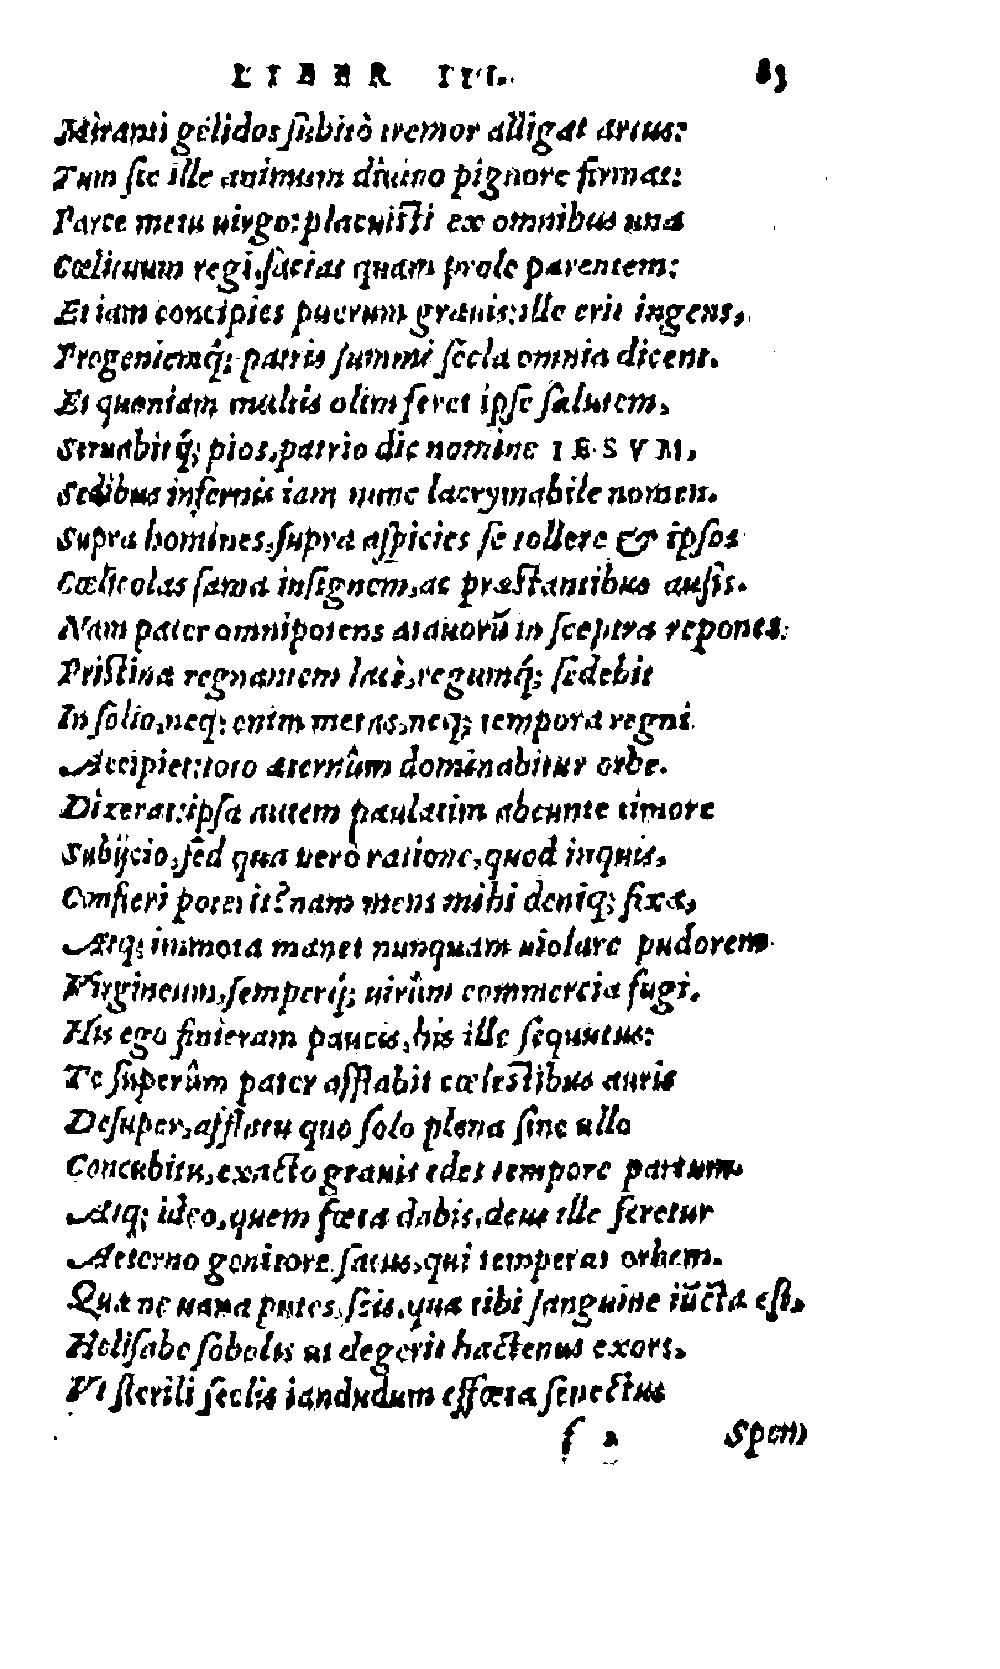 LIBER III. 83
Miranti gélidos subitò tremor alligat artus:
Tum sic ille animum diuino pignore firmat:
Parce metu uirgo: placuisti ex omnibus una
Cœlituum regi, faciat quam prole parentem:
Et iam concipies puerum grauis: ille erit ingens,
Progeniemq́; patris summi secla omnia dicent.
Et quoniam multis olim feret ipse salutem,
Seruabitq́; pios, patrio dic nomine IESVM,
Sedibus infernis iam nunc lacrymabile nomen.
Supra homines, supra aspicies se tollere & ipsos
Cœlicolas fama insignem, ac præstantibus ausis.
Nam pater omnipotens atauorũ in sceptra reponet:
Pristina regnantem latè, regumq́; sedebit
In solio, neq; enim metas, neq; tempora regni
Accipiet: toto æternûm dominabitur orbe.
Dixerat: ipsa autem paulatim abeunte timore
Subijcio, sed qua uerò ratione, quod inquis,
Confieri poterit? nam mens mihi deniq; fixa,
Atq; immota manet nunquam uiolare pudorem
Virgineum, semperq́; uirûm commercia fugi.
His ego finieram paucis, his ille sequutus:
Te superûm pater afflabit cœlestibus auris
Desuper, afflatu quo solo plena sine ullo
Concubitu, exacto grauis edes tempore partum.
Atq; ideo, quem fœta dabis, deus ille feretur
Aeterno genitore satus, qui temperat orbem.
Quæ ne uana putes, scis, quæ tibi sanguine iũcta est,
Helisabe sobolis ut degerit hactenus exors,
Vt sterili seclis iandudum effœta senectus
f 2 Spem